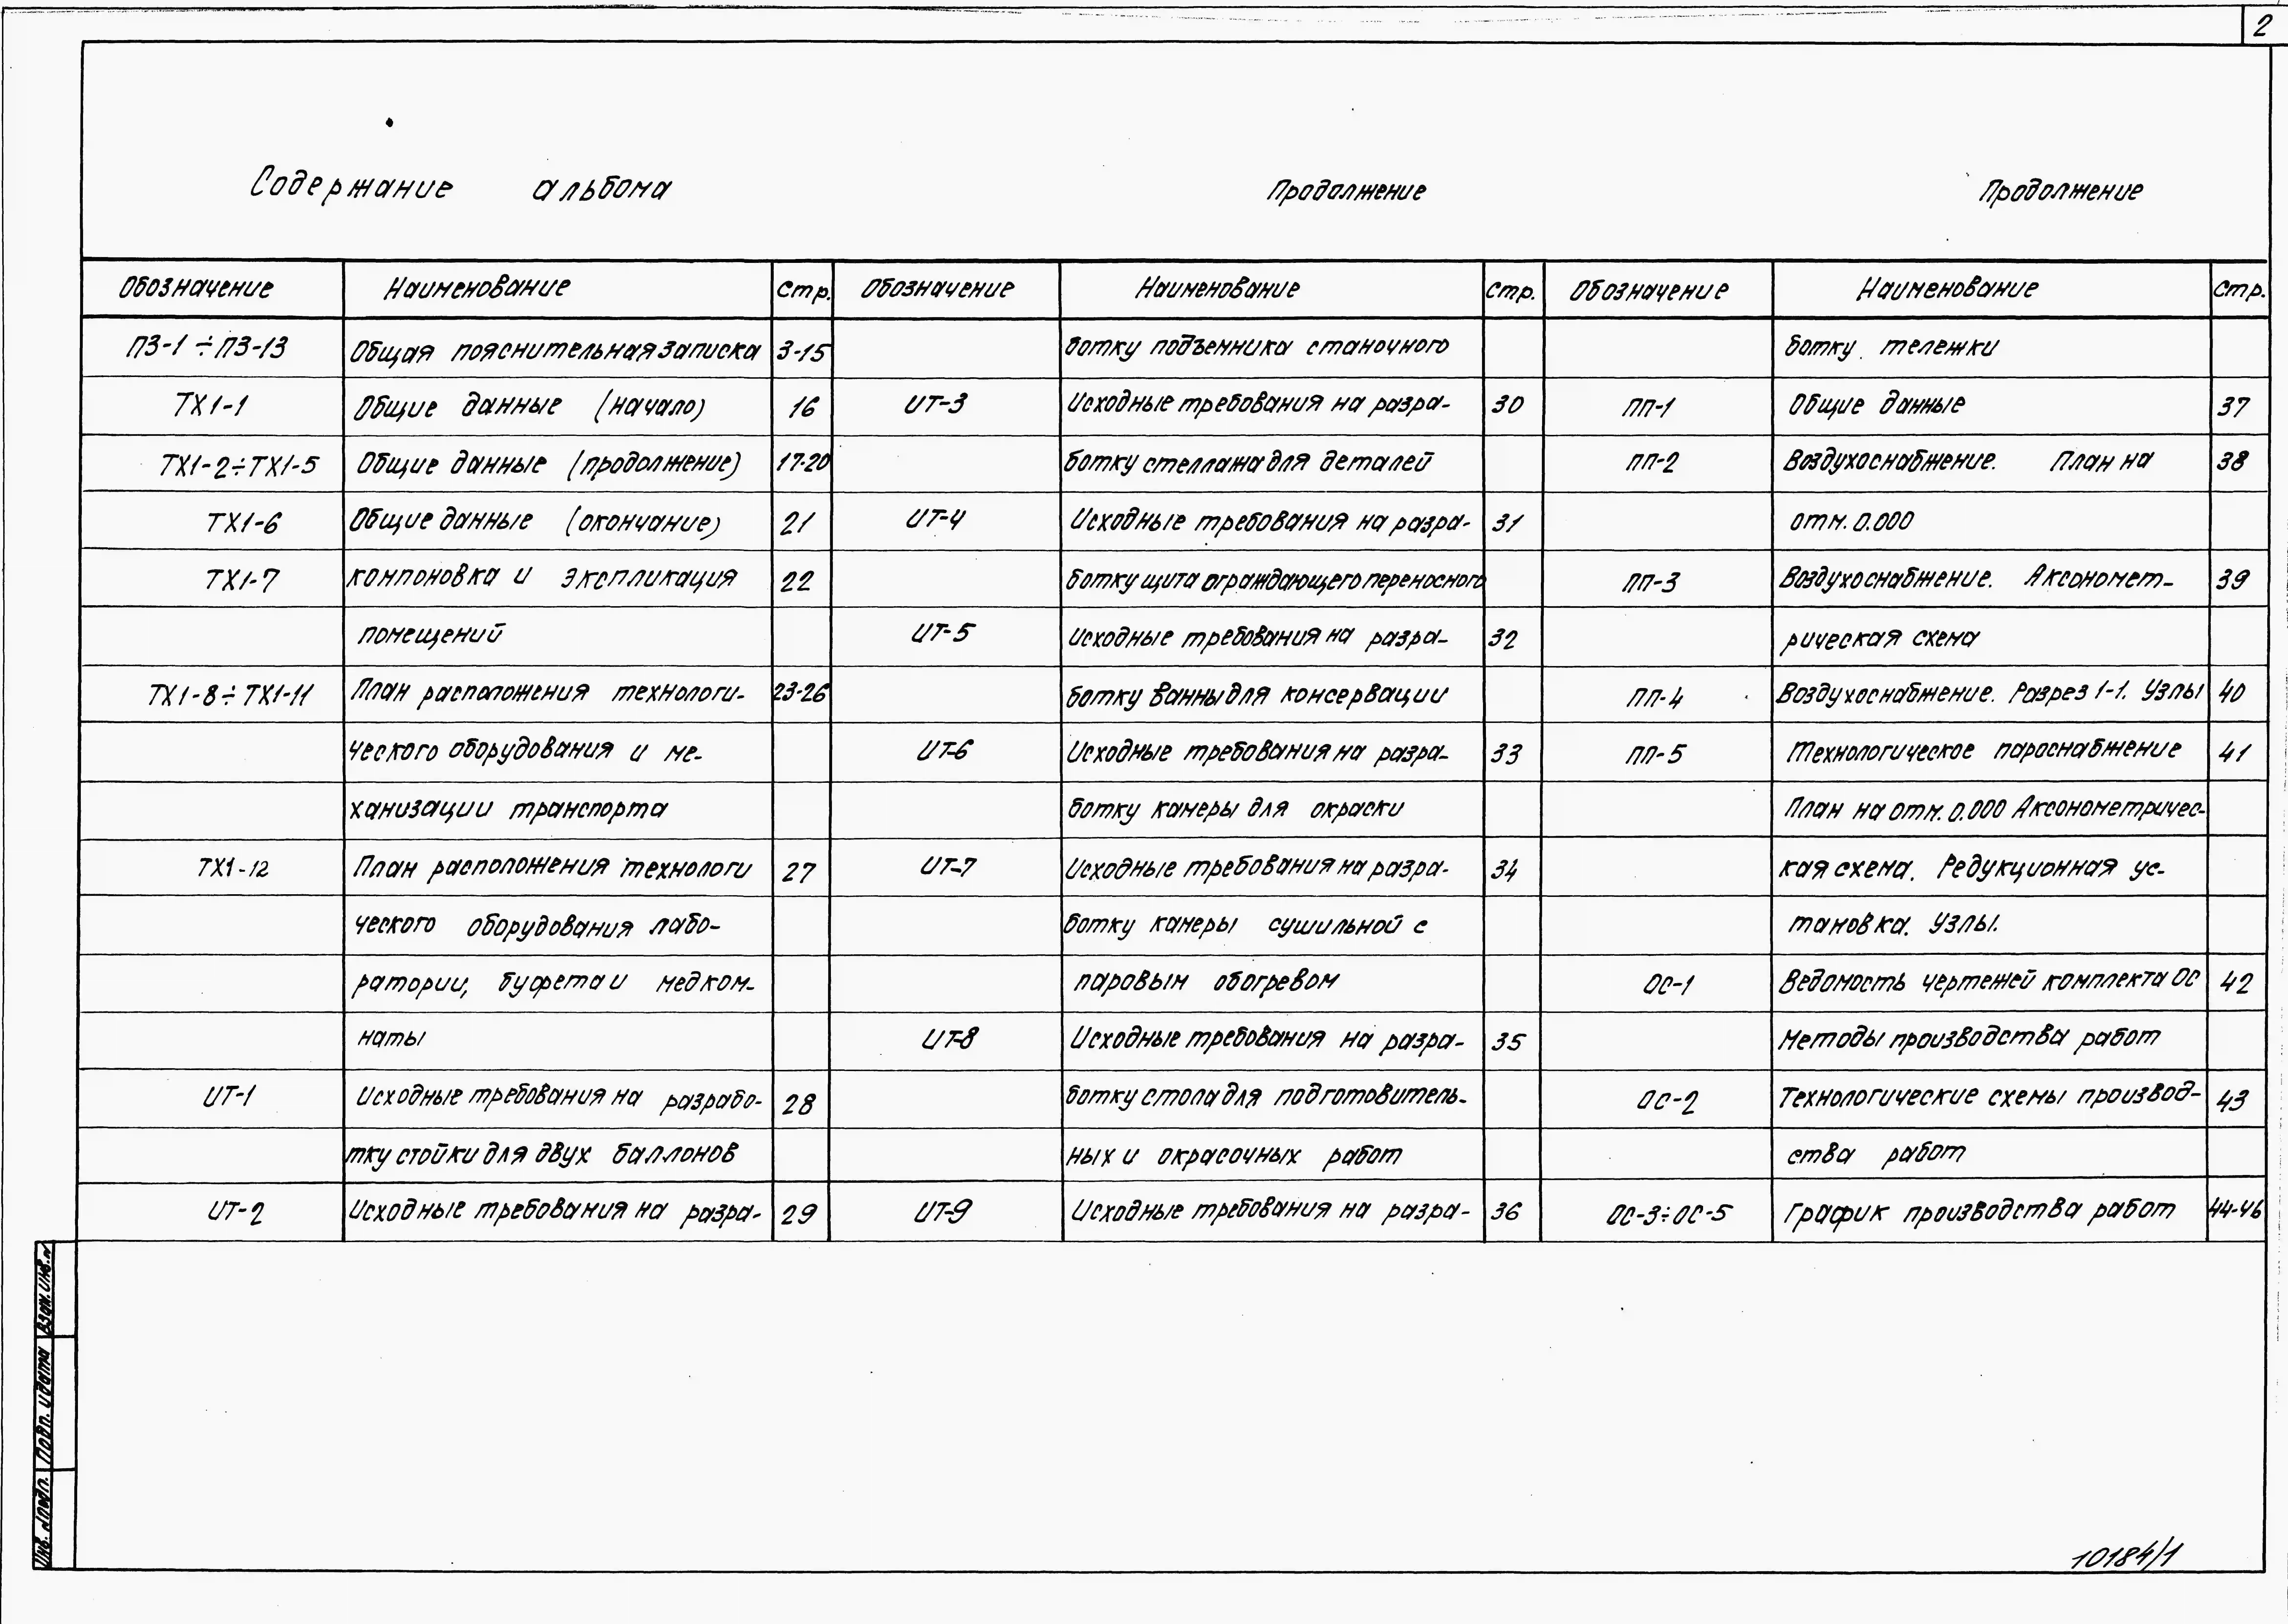 2
Содержание альбома
Обозначение Наименование Стр.
ПЗ-1÷ПЗ-13 Общая пояснительная записка 3-15
ТХ1-1 Общие данные (начало) 16
ТХ1-2÷ТХ1-5 Общие данные (продолжение) 17-20
ТХ1-6 Общие данные (окончание) 21
ТХ1-7 компоновка и экспликация 22
помещений
ТХ1-8÷ТХ1-11 План расположения технологи- 23-26
ческого оборудования и ме-
ханизации транспорта
ТХ1-12 План расположения технологи 27
ческого оборудования лабо-
ратории, буфета и медком-
наты
ИТ-1 Исходные требования на разрабо- 28
тку стойки для двух баллонов
ИТ-2 Исходные требования на разра- 29
Продолжение
Обозначение Наименование Стр.
ботку подъемника станочного
ИТ-3 Исходные требования на разра- 30
ботку стеллажа для деталей
ИТ-4 Исходные требования на разра- 31
ботку щита ограждающего переносного
ИТ-5 Исходные требования на разра- 32
ботку ванны для консервации
ИТ-6 Исходные требования на разра- 33
ботку камеры для окраски
ИТ-7 Исходные требования на разра- 34
ботку камеры сушильной с
паровым обогревом
ИТ-8 Исходные требования на разра- 35
ботку стола для подготовитель-
ных и окрасочных работ
ИТ-9 Исходные требования на разра- 36
Продолжение
Обозначение Наименование Стр.
ботку тележки
ПП-1 Общие данные 37
ПП-2 Воздухоснабжение. План на 38
отм. 0.000
ПП-3 Воздухоснабжение. Аксономет- 39
рическая схема
ПП-4 Воздухоснабжение. Разрез 1-1. Узлы 40
ПП-5 Технологическое пароснабжение 41
План на отм. 0.000 Аксонометричес-
кая схема. Редукционная ус-
тановка. Узлы.
ОС-1 Ведомость чертежей комплекта ОС 42
Методы производства работ
ОС-2 Технологические схемы производ- 43
ства работ
ОС-3÷ОС-5 График производства работ 44-46
Взам. инв. №
Подп. и дата
Инв. № подл.
10184/1